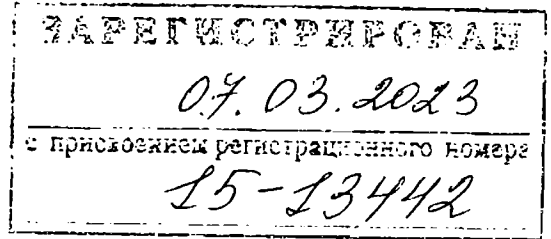 ЗАРЕГИСТРИРОВАН
07.03.2023
с присвоением регистрационного номера
15-13442